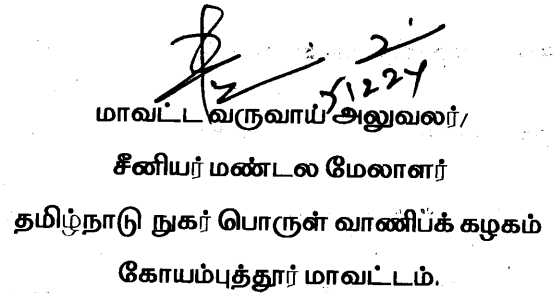 மாவட்ட வருவாய் அலுவலர்/
சீனியர் மண்டல மேலாளர்
தமிழ்நாடு நுகர் பொருள் வாணிபக் கழகம்
கோயம்புத்தூர் மாவட்டம்.